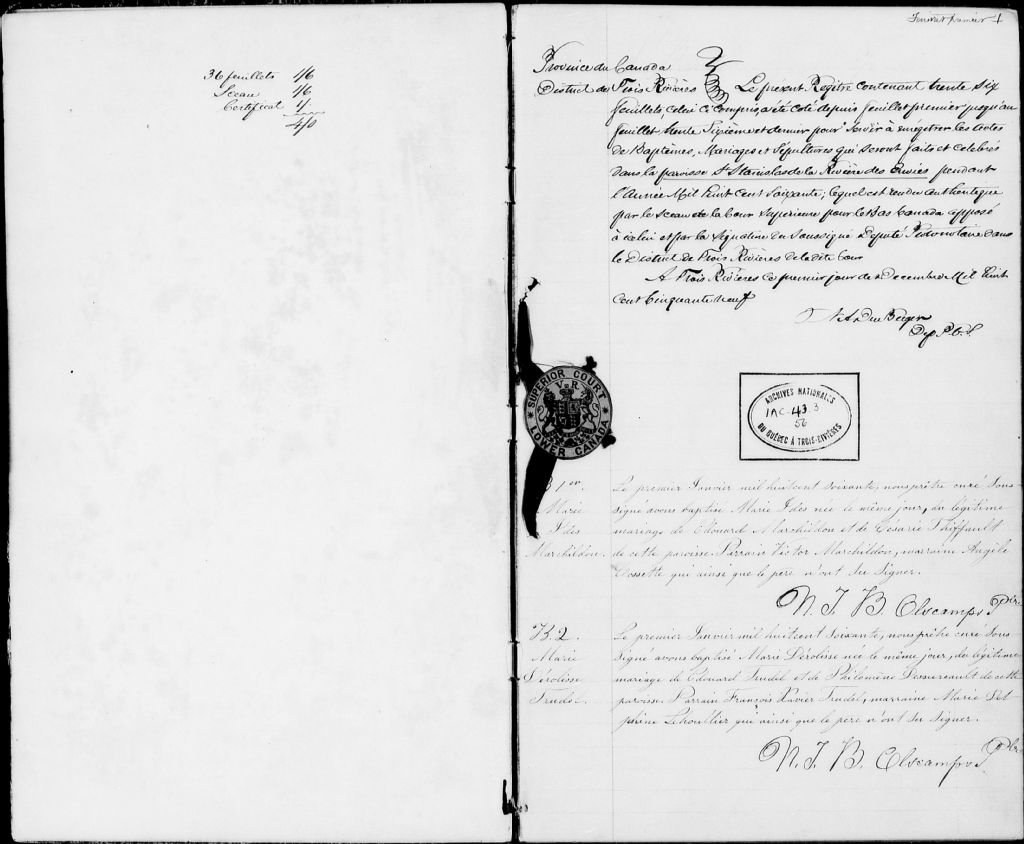 36 feuillets 4/6
Sceau 4/6
Certificat 1/.
Feuillet premier 1
Province du Canada
District de Trois Rivières
Le présent Registre contenant trente six
feuillets, celui ci compris, a été coté depuis feuillet premier jusqu'au
feuillet trente sixième et dernier pour servir à enrégitrer les actes
de Baptêmes, Mariages et Sépultures qui seront faits et celebrés
dans la paroisse St Stanislas de la Rivière des Envies pendant
l'Année Mil huit cent Soixante; lequel est rendu authentique
par le sceau de la Cour Superieure pour le Bas Canada apposé
à icelui et par la signature du soussigné Deputé Protonotaire dans
le District de Trois Rivières de la dite Cour
A Trois Rivières ce premier jour de Decembre Mil huit
Cent Cinquante neuf
Dep. P.C.S.
SUPERIOR COURT
V R
LOWER CANADA
ARCHIVES NATIONALES
1AC-43.3
56
DU QUÉBEC À TROIS-RIVIÈRES
B 1er
Marie
Idès
Marchildon.
Le premier Janvier mil huit cent soixante, nous prêtre curé sous-
signé avons baptisé Marie Idès née le même jour, du légitime
mariage de Edouard Marchildon et de Césarie Thiffault
de cette paroisse. Parrain Victor Marchildon, marraine Angèle
Cossette qui ainsi que le père n'ont su signer.
N. J. B. Olscamps Ptre.
B. 2.
Marie
Dérolisse
Trudel.
Le premier Janvier mil huit cent soixante, nous prêtre curé sous-
signé avons baptisé Marie Dérolisse née le même jour, du légitime
mariage de Edouard Trudel et de Philomène Dessureault de cette
paroisse. Parrain François Xavier Trudel, marraine Marie Del
phine Lehoullier qui ainsi que le père n'ont su signer.
N. J. B. Olscamps Ptre.